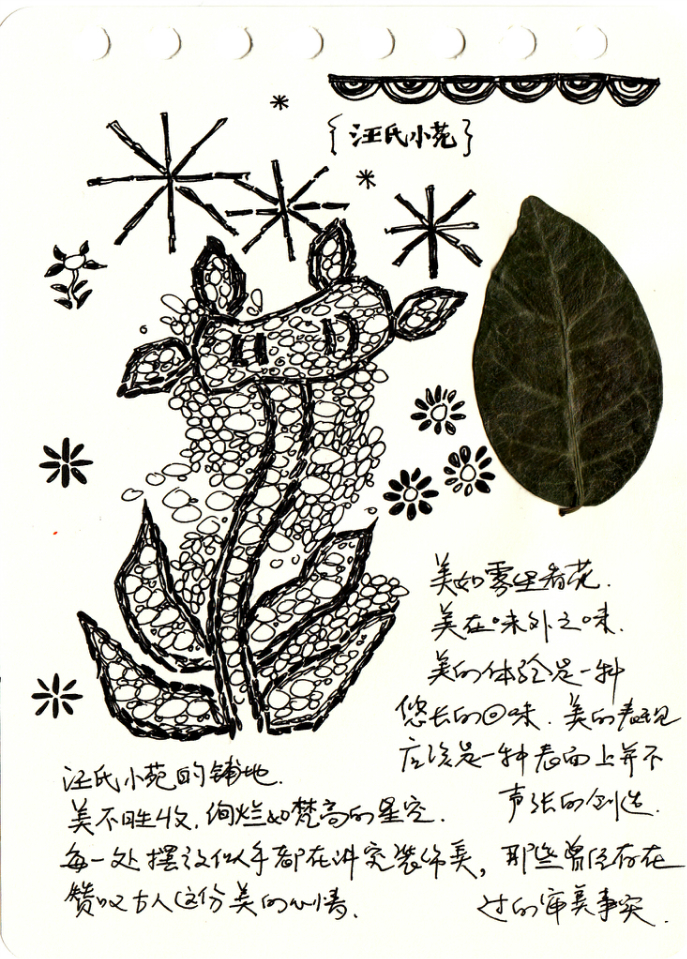 {汪氏小苑}
美如雾里看花.
美在味外之味.
美的体验是一种
悠长的回味. 美的表现
应该是一种表面上并不
声张的创造.
汪氏小苑的铺地.
美不胜收, 绚烂如梵高的星空.
每一处摆设似乎都在讲究装饰美, 那些曾经存在
赞叹古人这份美的心情.
过的审美事实.